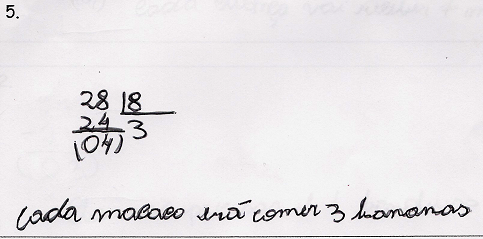 5.
28 |8
24 3
(04)
Cada macaco irá comer 3 bananas